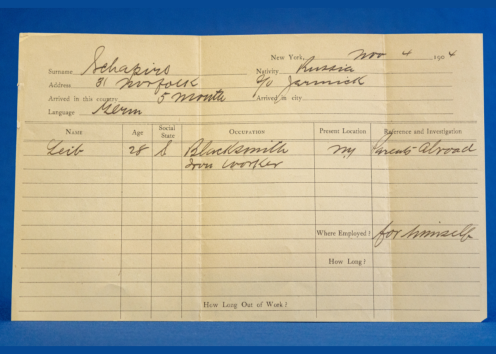 New York, Nov 4 1904
Surname Schapiro Nativity Russia
Address 81 Norfolk c/o Jarmick
Arrived in this country 5 months Arrived in city
Language Germ
Name Age Social State Occupation Present Location Reference and Investigation
Leib 28 S Blacksmith NY Parents Abroad
Iron Worker
Where Employed? for himself
How Long?
How Long Out of Work?